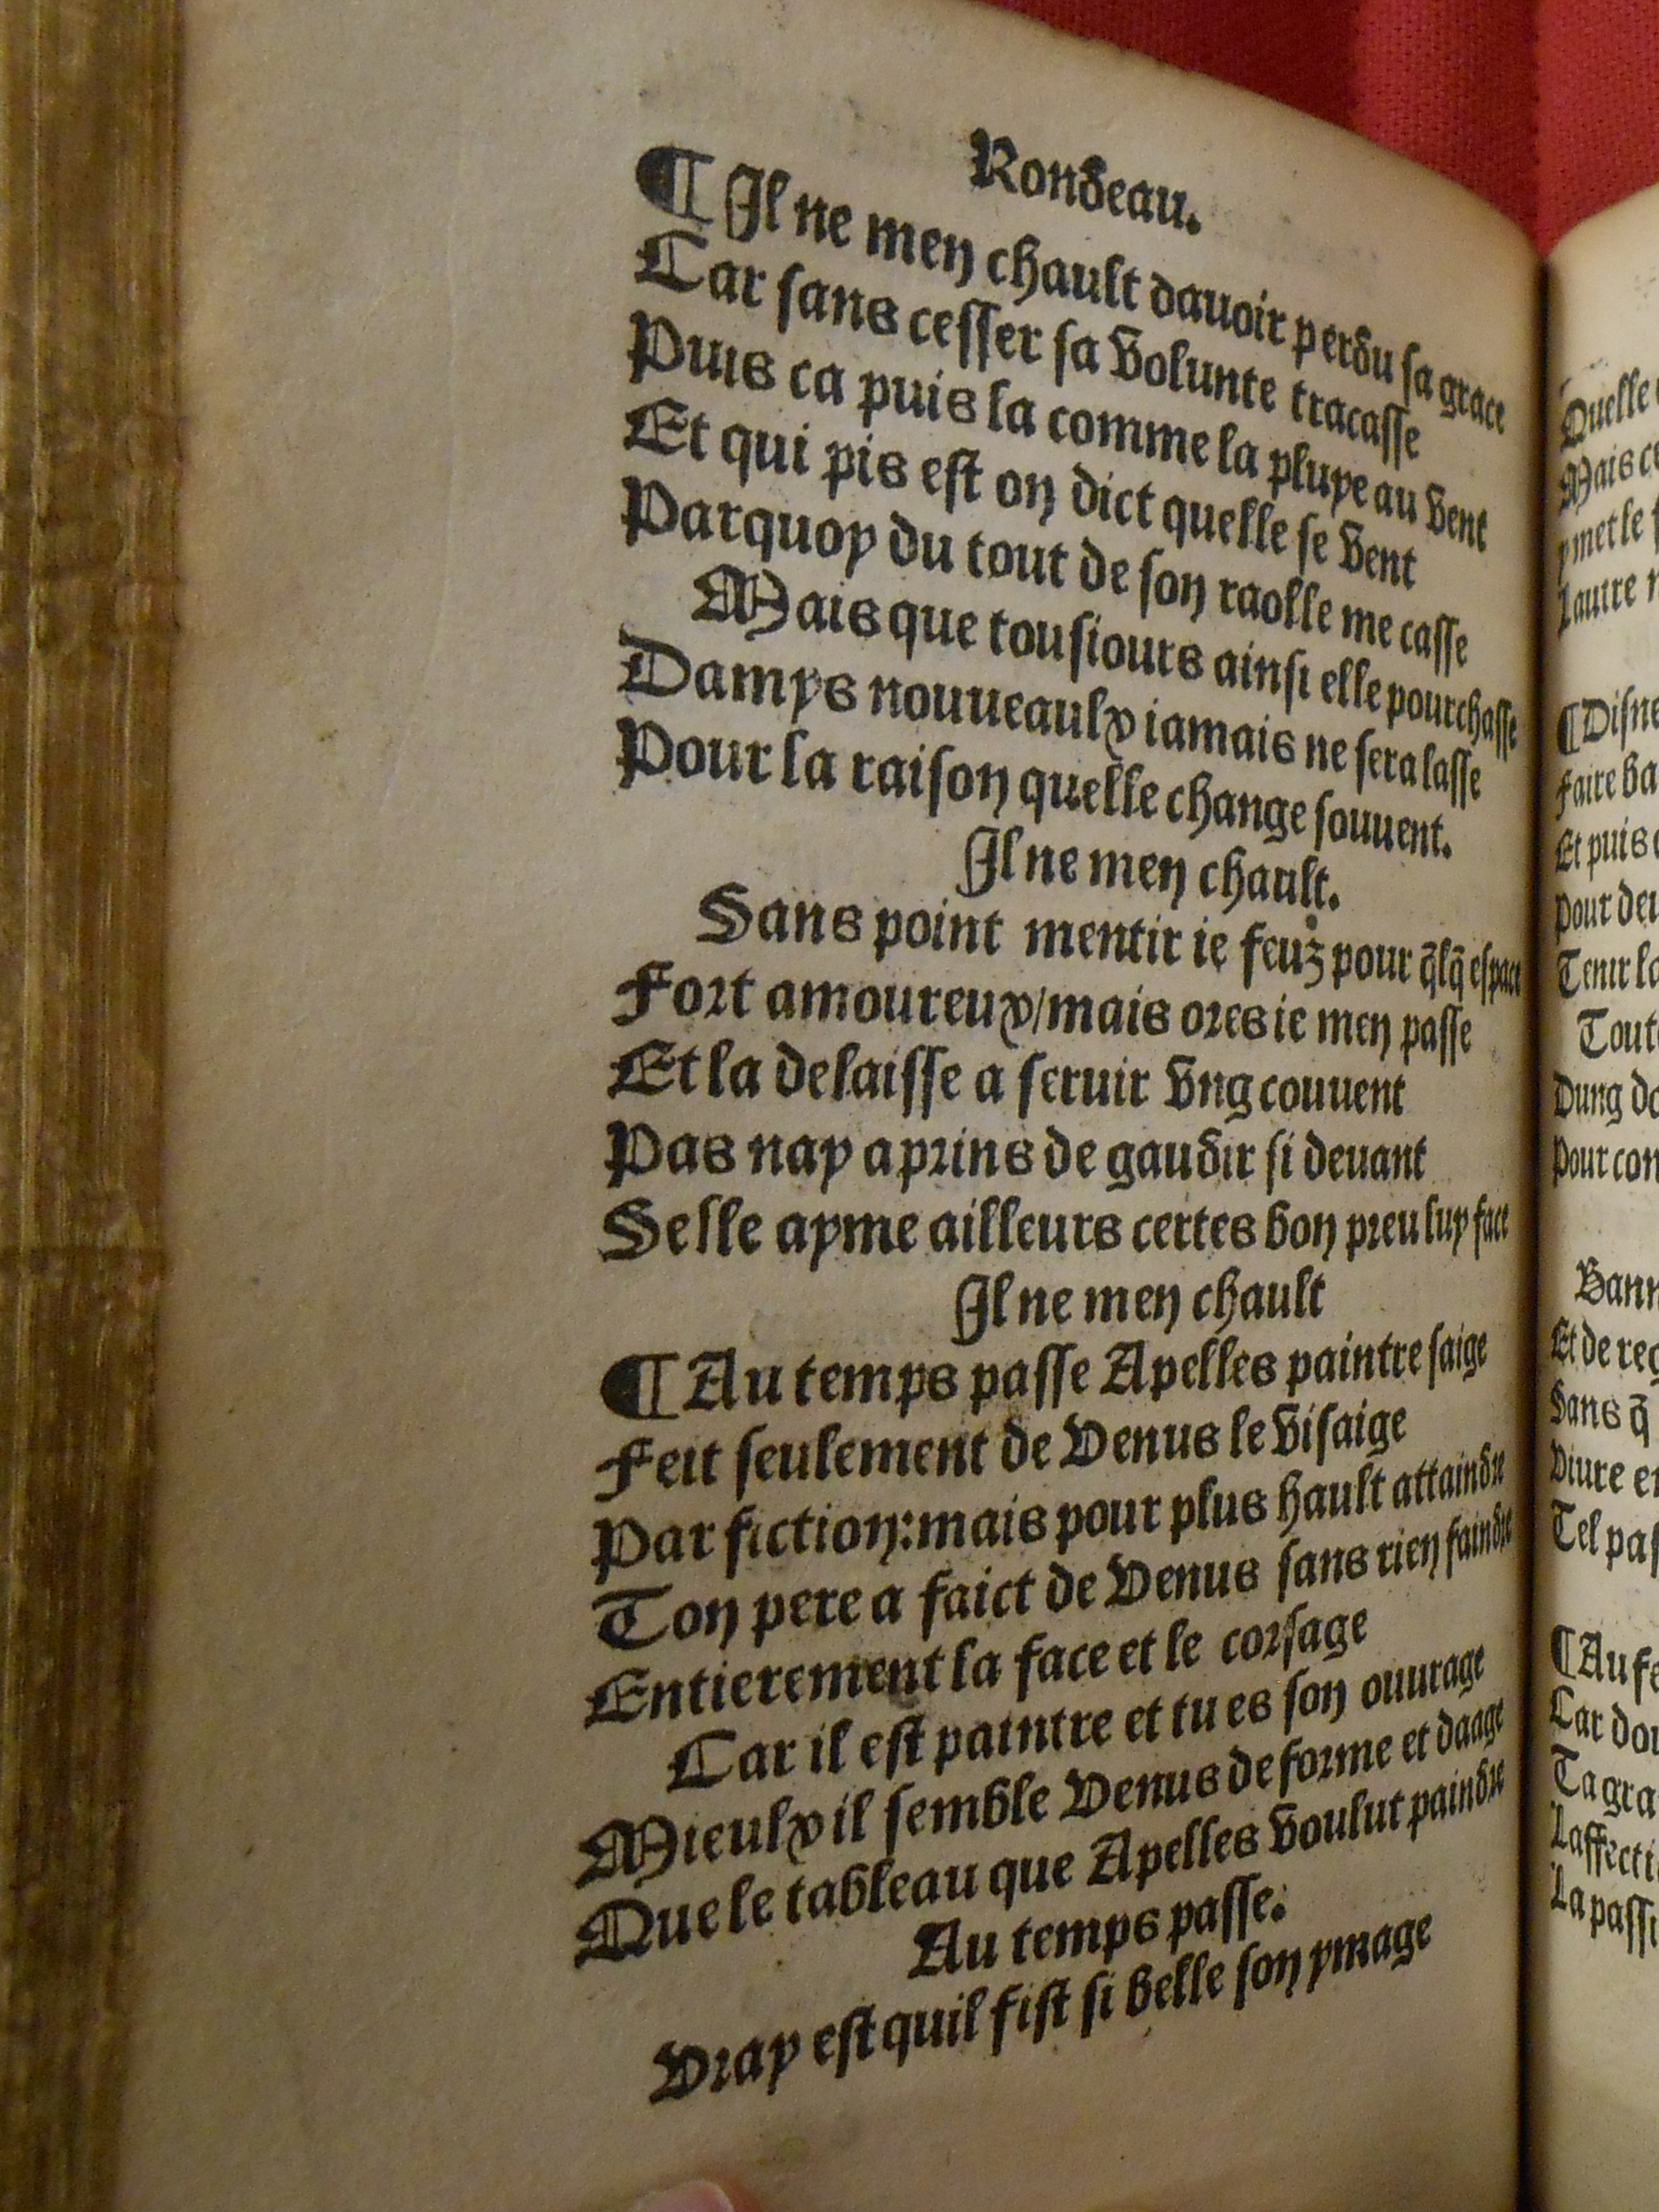 Rondeau.
¶ Il ne men chault dauoir perdu sa grace
Car sans cesser sa volunte tracasse
Puis ca puis la comme la pluye au vent
Et qui pis est on dict quelle se vent
Parquoy du tout de son raolle me casse
Mais que tousiours ainsi elle pourchasse
Damys nouueaulx iamais ne sera lasse
Pour la raison quelle change souuent.
Il ne men chault.
Sans point mentir ie feuz pour q̃lq̃ espace
Fort amoureux/mais ores ie men passe
Et la delaisse a seruir vng couuent
Pas nay aprins de gaudir si deuant
Selle ayme ailleurs certes bon preu luy face
Il ne men chault
¶ Au temps passe Apelles paintre saige
Feit seulement de Venus le visaige
Par fiction: mais pour plus hault attaindre
Ton pere a faict de Venus sans rien faindre
Entierement la face et le corsage
Car il est paintre et tu es son ouurage
Mieulx il semble Venus de forme et daage
Que le tableau que Apelles voulut paindre
Au temps passe.
Vray est quil fist si belle son ymage
Quelle
Mais
y met le
Lautre
¶ Disne
Faire
Et puis
Pour
Tenir
Dung
Pour
Et de
Sans q̃
Viure
Tel
¶ Au
Car
Ta
La